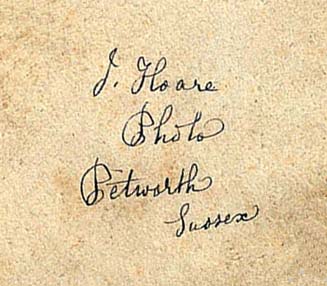 J. Hoare
Photo
Petworth
Sussex